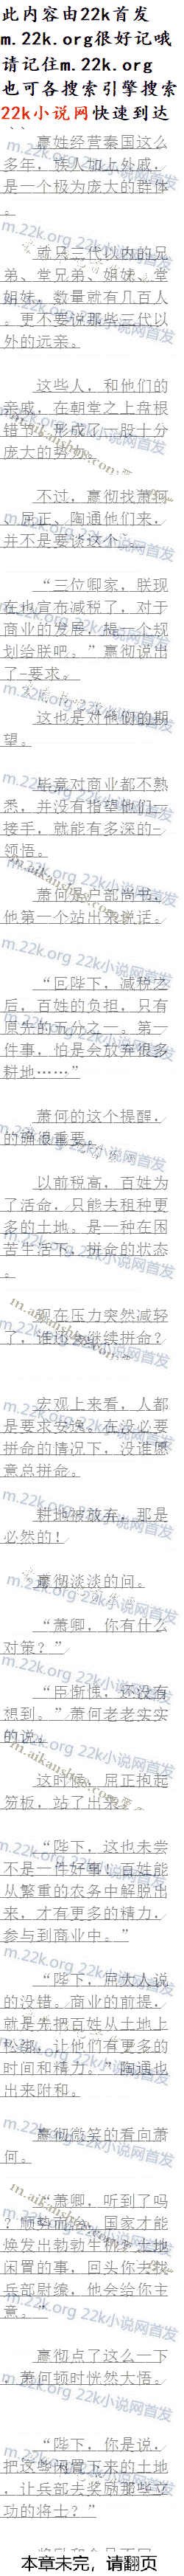 此内容由22k首发
m.22k.org很好记哦
请记住m.22k.org
也可各搜索引擎搜索
22k小说网快速到达
嬴姓经营秦国这么
多年，族人加上外戚，
是一个极为庞大的群体
。
就只三代以内的兄
弟、堂兄弟、姐妹、堂
姐妹，数量就有几百人
。更不要说那些三代以
外的远亲。
这些人，和他们的
亲戚，在朝堂之上盘根
错节，形成了一股十分
庞大的势力。
不过，嬴彻找萧何
、屈正、陶通他们来，
并不是要谈这个。
“三位卿家，朕现
在也宣布减税了，对于
商业的发展，提一个规
划给朕吧。”嬴彻说出
了-要求。
这也是对他们的期
望。
毕竟对商业都不熟
悉，并没有指望他们一
接手，就能有多深的-
领悟。
萧何是户部尚书，
他第一个站出来说话。
“回陛下，减税之
后，百姓的负担，只有
原先的五分之一。第一
件事，怕是会放弃很多
耕地……”
萧何的这个提醒，
的确很重要。
以前税高，百姓为
了活命，只能去租种更
多的土地。是一种在困
苦生活下，拼命的状态
。
现在压力突然减轻
了，谁还会继续拼命？
宏观上来看，人都
是要求安逸。在没必要
拼命的情况下，没谁愿
意总拼命。
耕地被放弃，那是
必然的！
嬴彻淡淡的问。
“萧卿，你有什么
对策？”
“臣惭愧，还没有
想到。”萧何老老实实
的说。
这时候，屈正抱起
笏板，站了出来。
“陛下，这也未尝
不是一件好事！百姓能
从繁重的农务中解脱出
来，才有更多的精力，
参与到商业中。”
“陛下，屈大人说
的没错。商业的前提，
就是先把百姓从土地上
松绑，让他们有更多的
时间和精力。”陶通也
出来附和。
嬴彻微笑的看向萧
何。
“萧卿，听到了吗
？顺势而为，国家才能
焕发出勃勃生机。土地
闲置的事，回头你去找
兵部尉缭，他会给你主
意。”
嬴彻点了这么一下
，萧何顿时恍然大悟。
“陛下，你是说，
把这些闲置下来的土地
，让兵部去奖励那些立
功的将士？”
本章未完，请翻页